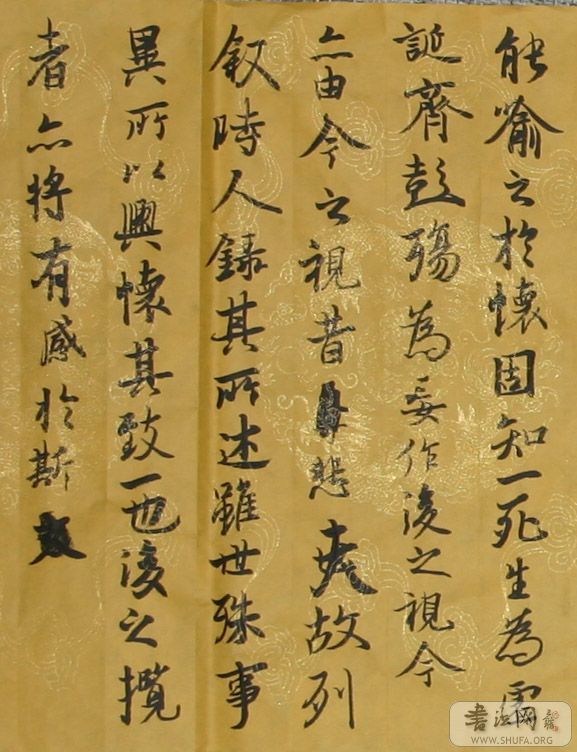 能喻之於懷固知一死生為虛
誕齊彭殤為妄作後之視今
亦由今之視昔悲夫故列
叙時人錄其所述雖世殊事
異所以興懷其致一也後之攬
者亦將有感於斯文
書法网
WWW.SHUFA.ORG